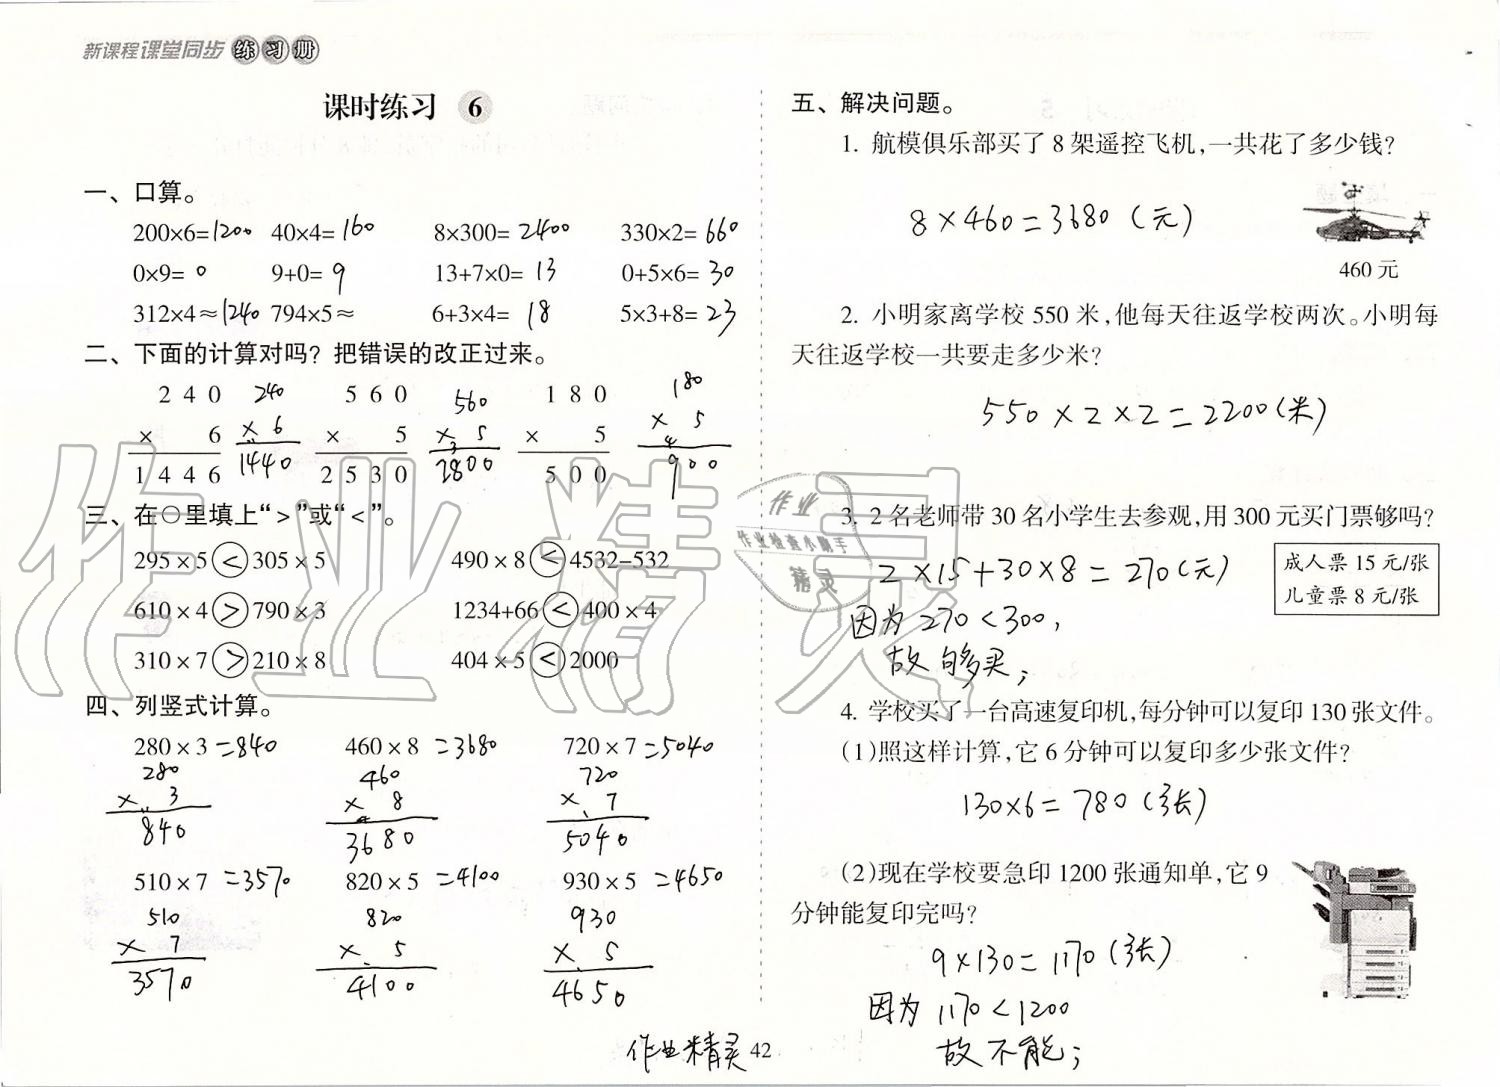 新课程课堂同步练习册
课时练习 6
一、口算。
200×6=1200 40×4=160 8×300=2400 330×2=660
0×9=0 9+0=9 13+7×0=13 0+5×6=30
312×4≈1240 794×5≈ 6+3×4=18 5×3+8=23
二、下面的计算对吗？把错误的改正过来。
240 240 560 560 180 180
× 6 × 6 × 5 × 5 × 5 × 5
1446 1440 2530 2800 500 900
三、在○里填上“>”或“<”。
295×5<305×5 490×8<4532-532
610×4>790×3 1234+66<400×4
310×7>210×8 404×5<2000
四、列竖式计算。
280×3=840 460×8=3680 720×7=5040
280 460 720
× 3 × 8 × 7
840 3680 5040
510×7=3570 820×5=4100 930×5=4650
510 820 930
× 7 × 5 × 5
3570 4100 4650
五、解决问题。
1. 航模俱乐部买了8架遥控飞机，一共花了多少钱？
8×460=3680（元）
460元
2. 小明家离学校550米，他每天往返学校两次。小明每
天往返学校一共要走多少米？
550×2×2=2200（米）
3. 2名老师带30名小学生去参观，用300元买门票够吗？
成人票15元/张
儿童票8元/张
2×15+30×8=270（元）
因为270<300，
故够买；
4. 学校买了一台高速复印机，每分钟可以复印130张文件。
(1)照这样计算，它6分钟可以复印多少张文件？
130×6=780（张）
(2)现在学校要急印1200张通知单，它9
分钟能复印完吗？
9×130=1170（张）
因为1170<1200
故不能；
作业精灵 42
作业精灵
作业
作业检查小助手
精灵